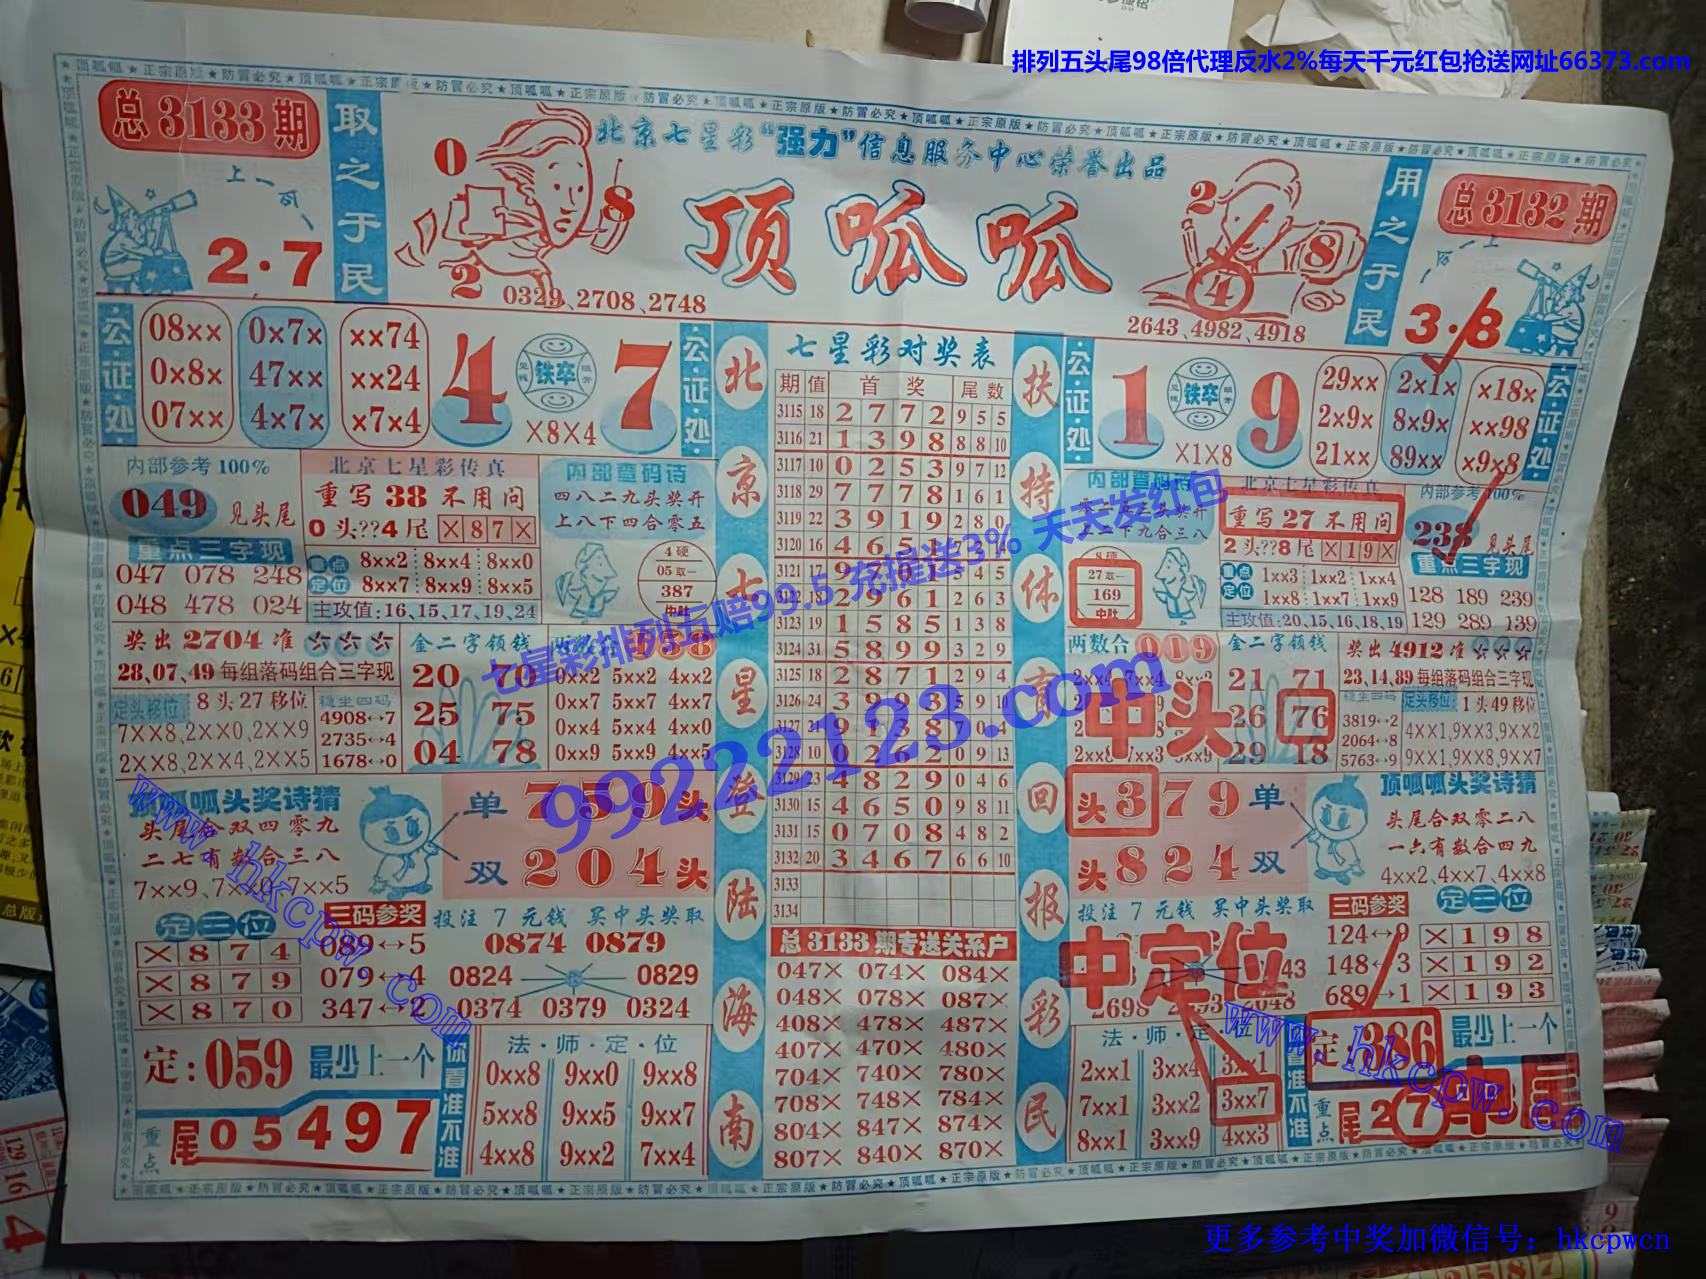 排列五头尾98倍代理反水2%每天千元红包抢送网址66373.com
总3133期
取之于民
上一向
2·7
0
8
2
0329、2708、2748
北京七星彩“强力”信息服务中心荣誉出品
顶呱呱
2
8
4
2643、4982、4918
用之于民
总3132期
3·8
公证处
08×× 0×7× ××74
0×8× 47×× ××24
07×× 4×7× ×7×4
4 铁卒 7
×8×4
公证处
内部参考100%
049 见头尾
重点三字现
047 078 248
048 478 024
北京七星彩传真
重写38不用问
0头??4尾 ×87×
重点定位
8××2 8××4 8××0
8××7 8××9 8××5
主攻值:16,15,17,19,24
内部宣码诗
四八二九头奖开
上八下四合零五
4硬
05取一
387
中肚
奖出2704准
28,07,49每组落码组合三字现
定头移位 8头27移位
7××8,2××0,2××9
2××8,2××4,2××5
稳坐四码
4908↔7
2735↔4
1678↔0
金二字领钱
20 70
25 75
04 78
0××2 5××2 4××2
0××7 5××7 4××7
0××4 5××4 4××0
0××9 5××9 4××5
顶呱呱头奖诗猜
头尾合双四零九
二七有数合三八
7××9、7××0、7××5
单 759头
双 204头
定三位
×874
×879
×870
三码参奖
089↔5
079↔4
347↔2
投注7元钱 买中头奖取
0874 0879
0824 0829
0374 0379 0324
定:059 最少上一个
重点 尾05497
你看准不准
法·师·定·位
0××8 9××0 9××8
5××8 9××5 9××7
4××8 9××2 7××4
北京七星登陆海南
七星彩对奖表
期 值 首奖 尾数
3115 18 2772 9 5 5
3116 21 1398 8 8 10
3117 10 0253 9 7 12
3118 29 7778 1 6 1
3119 22 3919 2 8 0
3120 16 4651
3121 17 9701 5 4 5
3122 18 2961 2 6 3
3123 19 1585 1 3 8
3124 31 5899 3 2 9
3125 18 2871 2 9 4
3126 24 3993 5 9 10
3127 21 9138
3128 10 0262 0 9 13
3129 23 4829 0 4 6
3130 15 4650 9 8 11
3131 15 0708 4 8 2
3132 20 3467 6 6 10
3133
3134
总3133期专送关系户
047× 074× 084×
048× 078× 087×
408× 478× 487×
407× 470× 480×
704× 740× 780×
708× 748× 784×
804× 847× 874×
807× 840× 870×
扶持体育回报彩民
公证处
1 铁卒 9
×1×8
29×× 2×1× ×18×
2×9× 8×9× ××98
21×× 89×× ×9×8
公证处
内部宣码诗
8硬
27取一
169
中肚
北京七星彩传真
重写27不用问
2头??8尾 ×19×
重点定位
1××3 1××2 1××4
1××8 1××7 1××9
主攻值:20,15,16,18,19
内部参考100%
238 见头尾
重点三字现
128 189 239
129 289 139
两数合 019
中头
金二字领钱
21 71
26 76
29 18
奖出4912准
23,14,89每组落码组合三字现
稳坐四码
3819↔2
2064↔8
5763↔9
定头移位: 1头49移位
4××1,9××3,9××2
9××1,9××8,9××7
头379单
头824双
顶呱呱头奖诗猜
头尾合双零二八
一六有数合四九
4××2、4××7、4××8
投注7元钱 买中头奖取
中定位
三码参奖
124↔9
148↔3
689↔1
定三位
×198
×192
×193
法·师·定·位
2××1 3××4 3××1
7××1 3××2 3××7
8××1 3××9 4××3
你看准不准
定:386 最少上一个
重点 尾27
中尾
七星彩排列五赔99.5 充提送3% 天天发红包
99222123.com
www.hkcpw.com
www.hkcpw.com
更多参考中奖加微信号：hkcpwcn